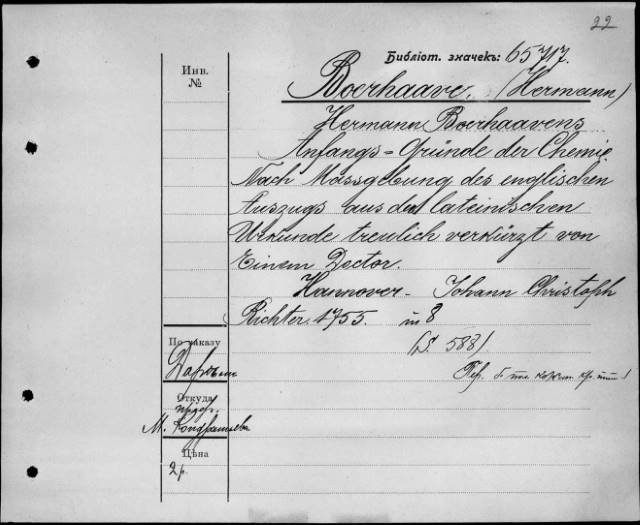 22
Библіот. значекъ: 65717.
Инв.
№
Boerhaave. (Hermann)
Hermann Boerhaavens
Anfangs-Gründe der Chemie.
Nach Massgebung des englischen
Auszugs aus der lateinischen
Urkunde treulich verkürzt von
Einem Doctor.
Hannover - Johann Christoph
Richter. 1755. in 8
(S. 588)
По заказу
Откуда
М. Кондратьева
Цѣна
2 р.